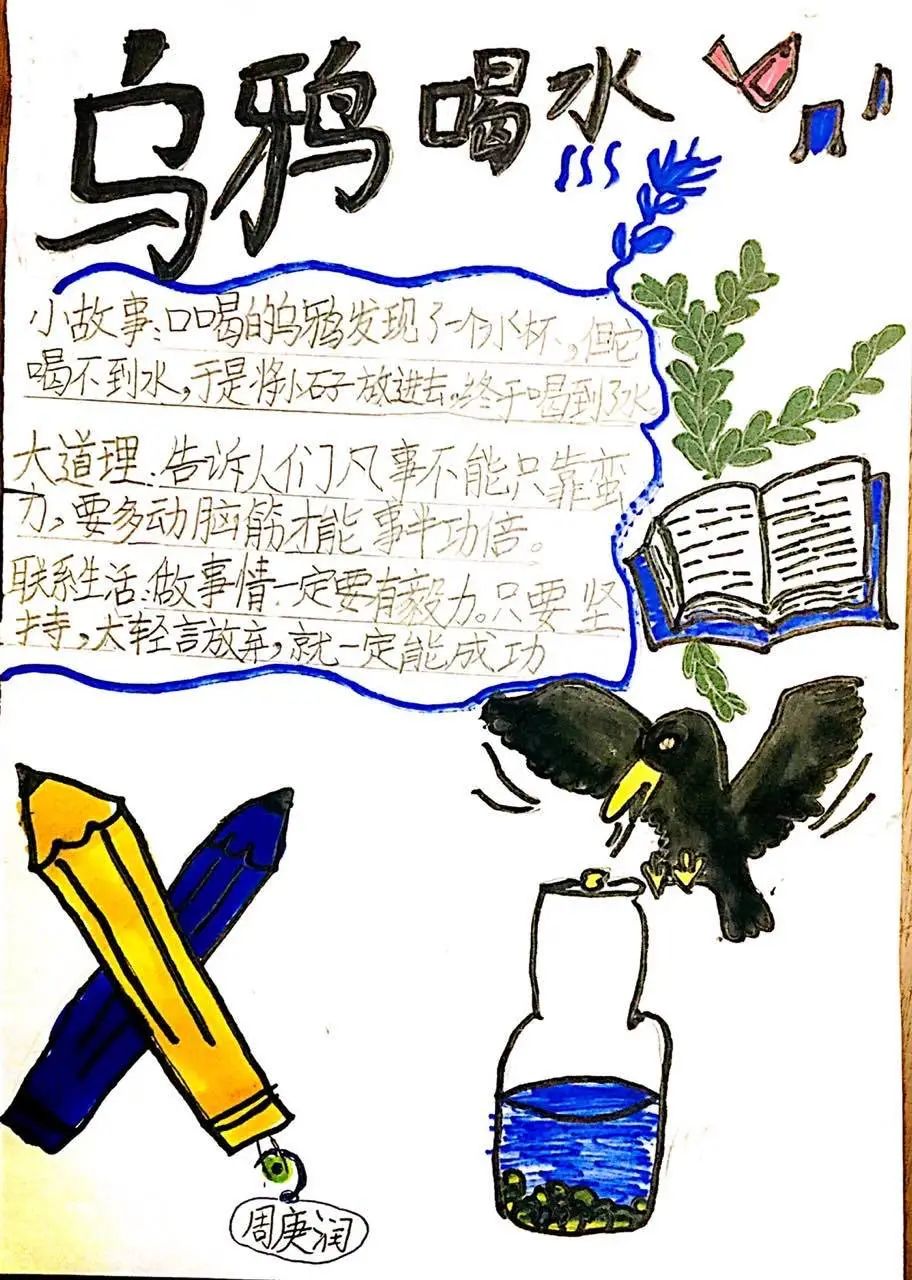 乌鸦喝水
小故事:口喝的乌鸦发现了一个水杯,但它
喝不到水,于是将小石子放进去。终于喝到了水。
大道理:告诉人们凡事不能只靠蛮
力,要多动脑筋才能事半功倍。
联系生活:做事情一定要有毅力。只要坚
持,太轻言放弃,就一定能成功
周庚润